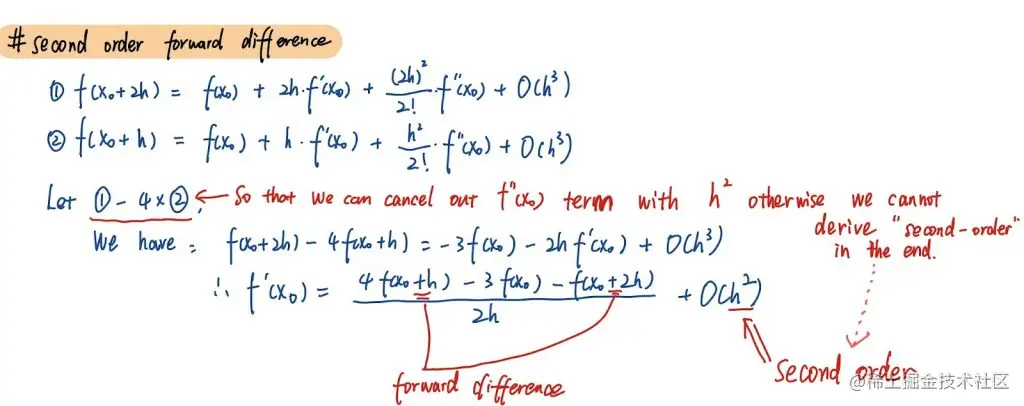 # second order forward difference
① f(x₀+2h) = f(x₀) + 2h·f'(x₀) + (2h)²/2!·f''(x₀) + O(h³)
② f(x₀+h) = f(x₀) + h·f'(x₀) + h²/2!·f''(x₀) + O(h³)
Let ①-4×②, ← So that we can cancel out f''(x₀) term with h² otherwise we cannot
derive "second-order"
in the end.
We have: f(x₀+2h) - 4f(x₀+h) = -3f(x₀) - 2hf'(x₀) + O(h³)
∴ f'(x₀) = 4f(x₀+h) - 3f(x₀) - f(x₀+2h) / 2h + O(h²)
forward difference
second order
@稀土掘金技术社区